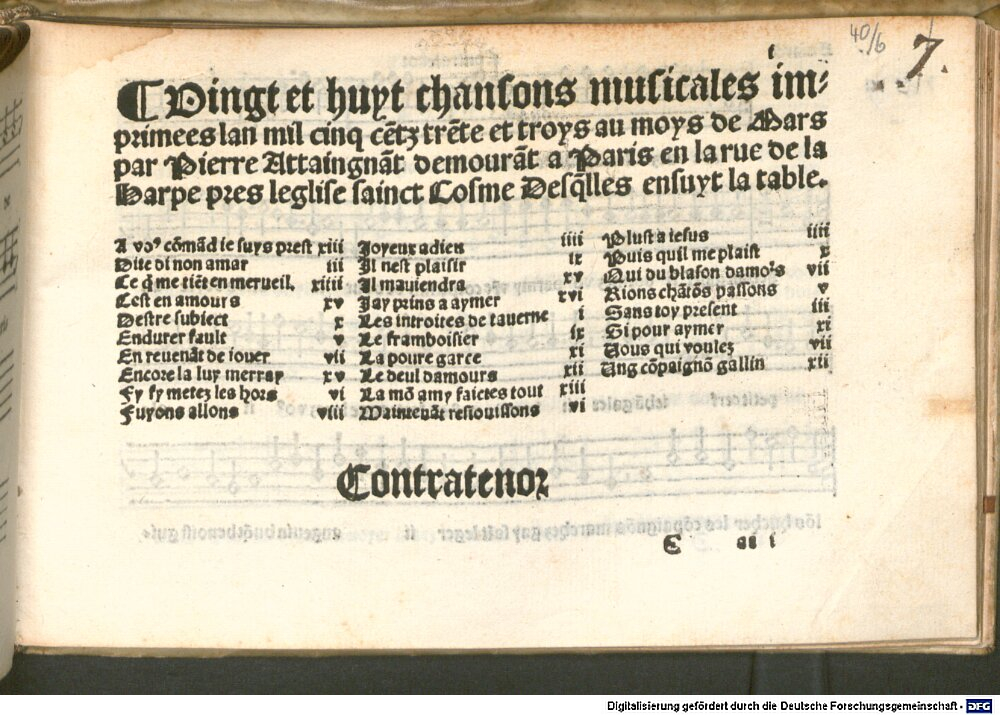 40/6
7.
i
¶ Vingt et huyt chansons musicales im-
primees lan mil cinq cētz trēte et troys au moys de Mars
par Pierre Attaingnāt demourāt a Paris en la rue de la
Harpe pres leglise sainct Cosme Desq̄lles ensuyt la table.
A voꝰ cōmād ie suys prest xiii
Dite di non amar iii
Ce q̄ me tiēt en merueil. xiiii
Cest en amours xv
Destre subiect x
Endurer fault v
En reuenāt de iouer vii
Encore la luy merray xv
Fy fy metez les hors vi
Fuyons allons viii
Joyeux adieu iiii
Il nest plaisir ix
Il mauiendra xv
Jay prins a aymer xvi
Les introites de tauerne i
Le framboisier ix
La poure garce xi
Le deul damours xii
La mō amy faictes tout xiii
Maintenāt resiouissons vi
Plust a iesus iiii
Puis quil me plaist x
Qui du blason damoꝰs vii
Rions chātōs passons v
Sans toy present iii
Si pour aymer xi
Vous qui voulez vii
Ung cōpaignō gallin xii
Contratenor
Digitalisierung gefördert durch die Deutsche Forschungsgemeinschaft - DFG